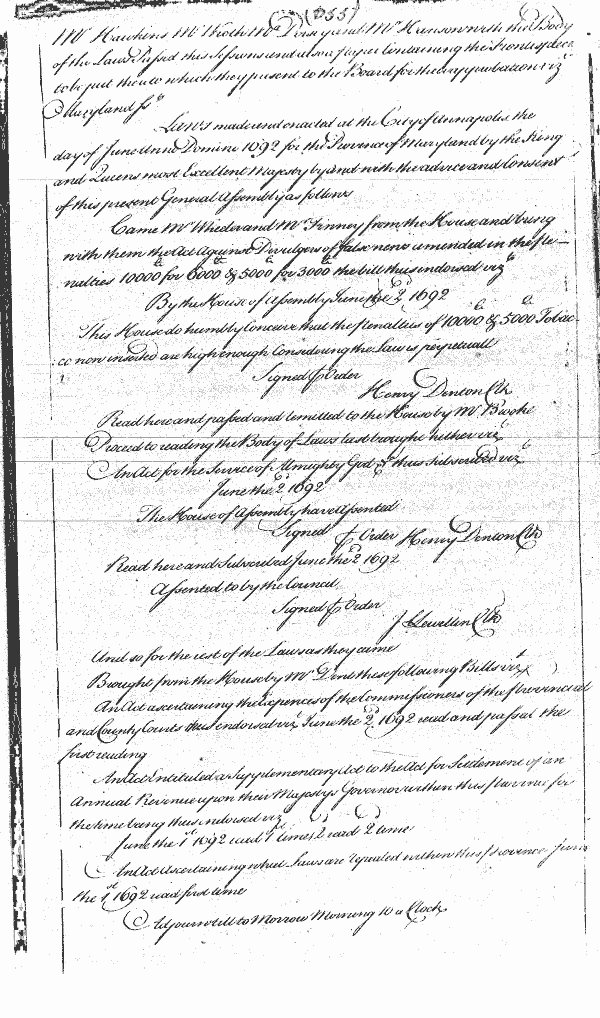 (355)
Mr Hawkins Mr Wroth Mr Dorsey and Mr Hanson with the Body
of the Laws Passed this Sessions and also a Paper Containing the Frontispiece
to be put thereto which they present to the Board for their approbation vizt
Maryland ss
Laws made and enacted at the City of Annapolis the
day of June Anno Domini 1692 for the Province of Maryland by the King
and Queens most Excellent Majesty by and with the advice and Consent
of this present General Assembly as follows
Came Mr Wheeler and Mr Finney from the House and bring
with them the Act Against Divulgers of false news amended in the Pe—
nalties 10000 for 6000 & 5000 for 3000 the bill thus indorsed vizt
By the House of Assembly June the 2d 1692
This House do humbly Conceive that the Penalties of 10000 & 5000 Tobac-
co now inserted are high enough Considering the Law is perpetuall
Signed P Order
Henry Denton Clk
Read here and passed and remitted to the House by Mr Brooke
Proceed to reading the Body of Laws last brought hither vizt
An Act for the Service of Almighty God & thus subscribed vizt
June the 2d 1692
The House of Assembly have Assented
Signed P Order Henry Denton Clk
Read here and Subscribed June the 2d 1692
Assented to by the Council
Signed P Order
J Llewellin Clk
And so for the rest of the Laws as they came
Brought from the House by Mr Dent these following Bills vizt
An Act ascertaining the Expences of the Commissioners of the Provincial
and County Courts thus endorsed vizt June the 2d 1692 read and passed the
first reading
An Act Entituled a Supplementary Act to the Act for Settlement of an
Annual Revenue upon their Majestys Governor within this Province for
the time being thus endorsed viz
June the 1st 1692 read 1st time, 2 read 2 time
An Act Ascertaining what Laws are repealed within this Province June
the 1st 1692 read first time
Adjourn till to Morrow Morning 10 a Clock